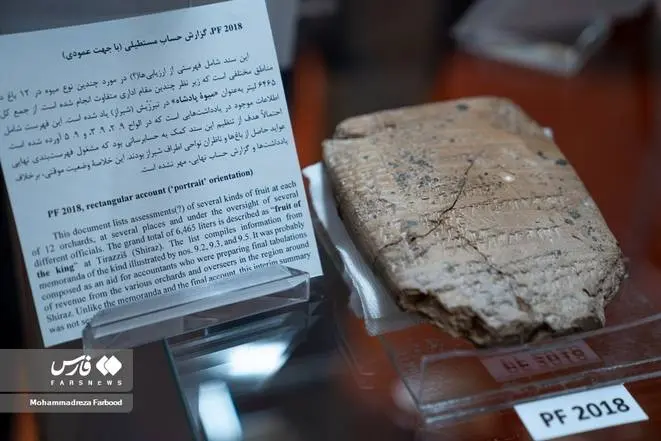 PF 2018، گزارش حساب مستطیلی (با جهت عمودی)
این سند شامل فهرستی از ارزیابی‌ها(؟) در مورد چندین نوع میوه در ۱۲ باغ در
مناطق مختلفی است که زیر نظر چندین مقام اداری متفاوت انجام شده است. از جمع کل
۶۴۶۵ لیتر به‌عنوان «میوهٔ پادشاه» در تیرَزّیش (شیراز) یاد شده است. این فهرست شامل
اطلاعات موجود در یادداشت‌هایی است که در الواح ۹.۲، ۹.۳ و ۹.۵ آورده شده است.
احتمالاً هدف از تنظیم این سند کمک به حسابرسانی بود که مشغول فهرست‌بندی نهایی
عواید حاصل از باغ‌ها و ناظران نواحی اطراف شیراز بودند. این خلاصهٔ وضعیت موقتی، برخلاف
یادداشت‌ها و گزارش حساب نهایی، مهر نشده است.
PF 2018, rectangular account ('portrait' orientation)
This document lists assessments(?) of several kinds of fruit at each
of 12 orchards, at several places and under the oversight of several
different officials. The grand total of 6,465 liters is described as "fruit of
the king" at Tirazziš (Shiraz). The list compiles information from
memoranda of the kind illustrated by nos. 9.2, 9.3, and 9.5. It was probably
composed as an aid for accountants who were preparing final tabulations
of revenue from the various orchards and overseers in the region around
Shiraz. Unlike the memoranda and the final account, this interim summary
was not
PF 2018
فارس
FARSNEWS
Mohammadreza Farbood